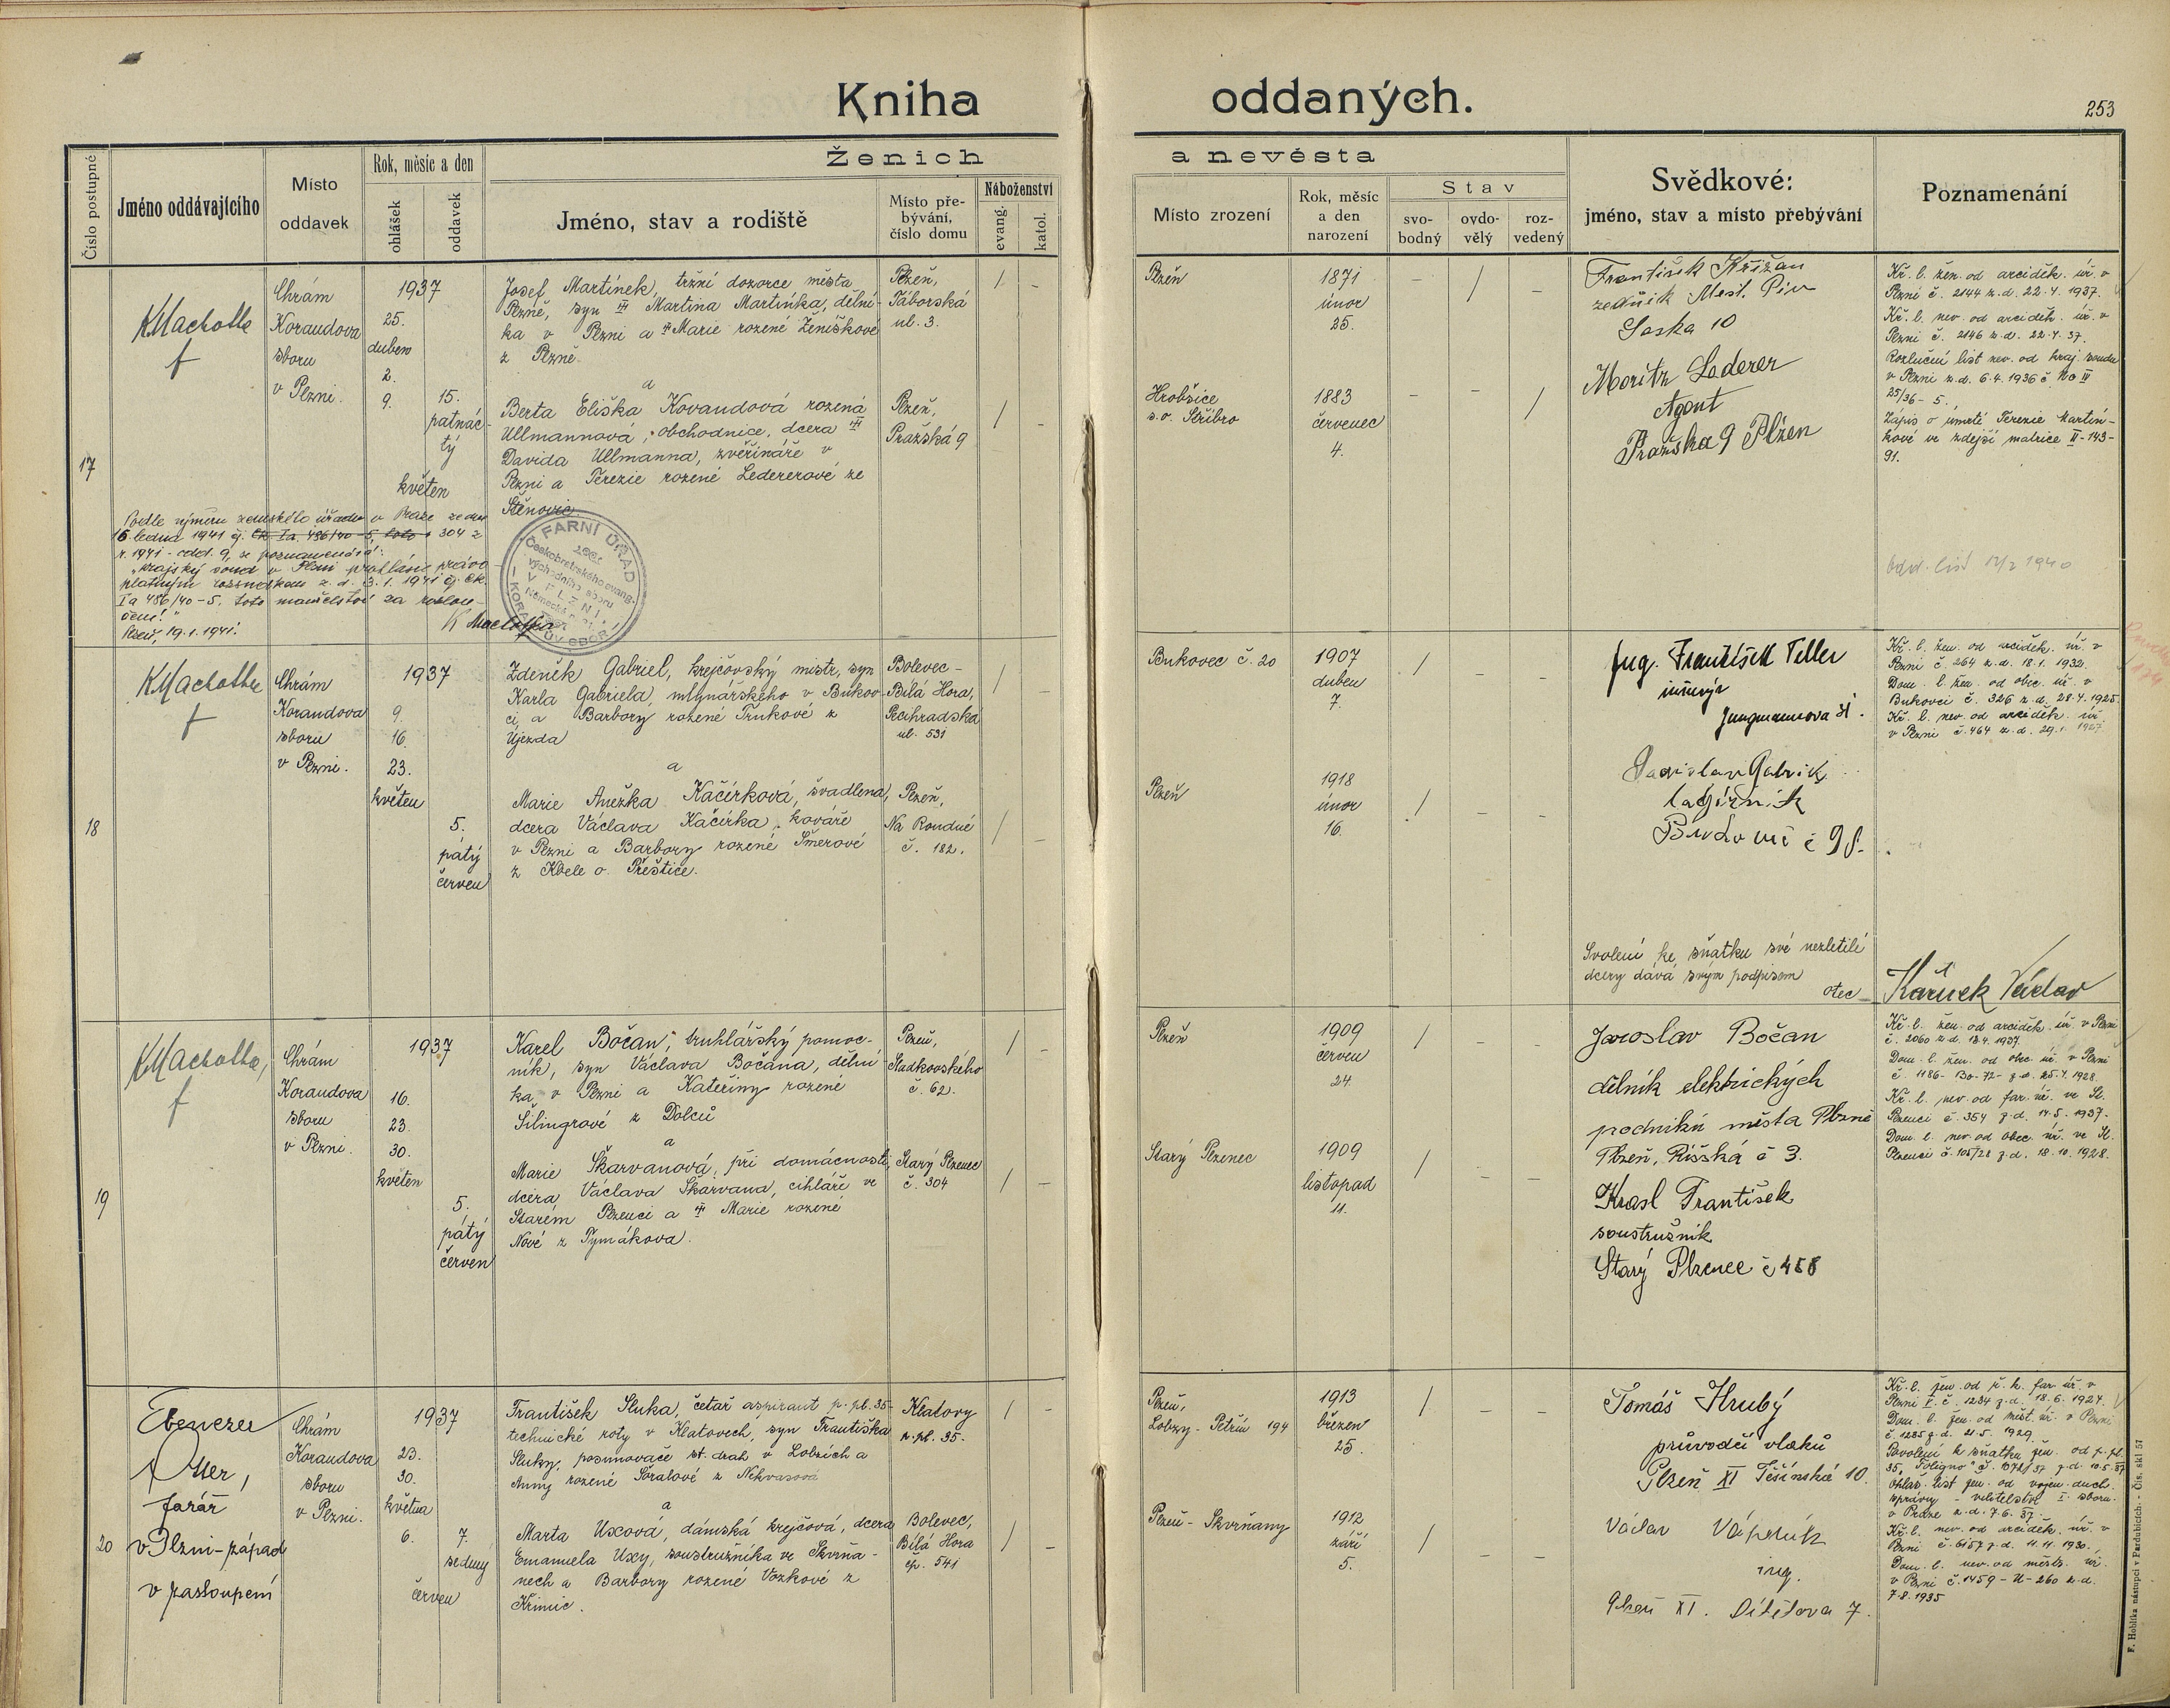 Kniha oddaných.
253
Číslo postupné
Jméno oddávajícího
Místo
oddavek
Rok, měsíc a den
ohlášek
oddavek
Ženich
Jméno, stav a rodiště
Místo pře-
bývání,
číslo domu
Náboženství
evang.
katol.
a nevěsta
Místo zrození
Rok, měsíc
a den
narození
Stav
svo-
bodný
ovdo-
vělý
roz-
vedený
Svědkové:
jméno, stav a místo přebývání
Poznamenání
17
KMachotka
f
Chrám
Korandova
sboru
v Plzni.
1937
25.
duben
2.
9.
15.
patnác-
tý
květen
Josef Martínek, tržní dozorce města
Plzně, syn Martina Martínka, dělní-
ka v Plzni a Marie rozené Ženíškové
z Plzně.
a
Berta Eliška Kovandová rozená
Ullmannová, obchodnice, dcera
Davida Ullmanna, zvěřináře v
Plzni a Terezie rozené Ledererové ze
Štěnovic.
Plzeň,
Táborská
ul. 3.
Plzeň,
Pražská 9
Podle výměru zemského úřadu v Praze ze dne
16. ledna 1941 čj. 304 z
r. 1941 - odd. 9, se poznamenává:
"Krajský soud v Plzni prohlásil právo
platným rozsudkem z. d. 3. 1. 1941 čj. Ck
Ia 486/40-5, toto manželství za rozlou-
čené."
Plzeň, 19. 1. 1941.
K Machotka
FARNÍ ÚŘAD
Českobratrského evang.
východního sboru
V PLZNI
KORANDŮV SBOR
Plzeň
1871
únor
25.
Hrobšice
s.o. Stříbro
1883
červenec
4.
František Křižan
zedník Měst. Piv
Saska 10
Moritz Lederer
Agent
Pražska 9 Plzen
Kř. l. žen. od arciděk. úř. v
Plzni č. 2144 z. d. 22. 4. 1937.
Kř. l. nev. od arciděk. úř. v
Plzni č. 2146 z. d. 22. 4. 37.
Rozluční list nev. od kraj. soudu
v Plzni z. d. 6. 4. 1936 č.
25/36 - 5.
Zápis o úmrtí Terezie Martín-
kové ve zdejší matrice II-143-
91.
Odd. list 1940
18
KMachotka
f
Chrám
Korandova
sboru
v Plzni.
1937
9.
16.
23.
květen
5.
pátý
červen
Zdeněk Gabriel, krejčovský mistr, syn
Karla Gabriela, mlynářského v Bukov-
ci a Barbory rozené Trnkové z
Újezda
a
Marie Anežka Kačírková, švadlena,
dcera Václava Kačírka, kováře
v Plzni a Barbory rozené Šmerové
z Kbele o. Přeštice.
Bolevec -
Bílá Hora,
ul. 531
Plzeň,
Na Roudné
č. 182.
Bukovec č. 20
1907
duben
7.
Plzeň
1918
únor
16.
Ing. František Teller
Jungmannova
Svolení ke sňatku své nezletilé
dcery dává svým podpisem
otec
Kačírek Václav
Kř. l. žen. od arciděk. úř. v
Plzni č. 264 z. d. 18. 1. 1932.
Dom. l. žen. od obec. úř. v
Bukovci č. 326 z. d. 28. 4. 1925.
Kř. l. nev. od arciděk. úř.
v Plzni č. 464 z. d. 29. 1. 1927
19
KMachotka,
f
Chrám
Korandova
sboru
v Plzni.
1937
16.
23.
30.
květen
5.
pátý
červen
Karel Bočan, truhlářský pomoc-
ník, syn Václava Bočana, dělní-
ka v Plzni a Kateřiny rozené
Šilingrové z Dolců
a
Marie Škarvanová, při domácnosti,
dcera Václava Škarvana, cihláře ve
Starém Plzenci a Marie rozené
Nové z Tymákova.
Plzeň,
Sladkovského
č. 62.
Starý Plzenec
č. 304
Plzeň
1909
červen
24.
Starý Plzenec
1909
listopad
11.
Jaroslav Bočan
dělník elektrických
podniků města Plzně
Plzeň, Říšská č 3.
Krasl František
soustružník
Starý Plzenec č 458
Kř. l. žen. od arciděk. úř. v Plzni
č. 2060 z. d. 18. 4. 1937.
Dom. l. žen. od obec. úř. v Plzni
č. 1186 - Bo-72- z. d. 25. 4. 1928.
Kř. l. nev. od far. úř. ve St.
Plzenci č. 354 z. d. 14. 5. 1937.
Dom. l. nev. od obec. úř. ve St.
Plzenci č. 105/28 z. d. 18. 10. 1928.
20
Ebenezer
Otter,
farář
v Plzni-západ
v zastoupení
Chrám
Korandova
sboru
v Plzni.
1937
23.
30.
května
6.
7.
sedmý
červen
František Sluka, četař aspirant p. pl. 35-
technické roty v Klatovech, syn Františka
Sluky, posunovače st. drah v Lobzích a
Anny rozené Šoralové z Nekvasova
a
Marta Uxová, dámská krejčová, dcera
Emanuela Uxy, soustružníka ve Skvrňa-
nech a Barbory rozené Vozkové z
Křimic.
Klatovy
p. pl. 35.
Bolevec,
Bílá Hora
čp. 541
Plzeň,
Lobzy - Petřín 194
1913
březen
25.
Plzeň - Skvrňany
1912
září
5.
Tomáš Hrubý
průvodčí vlaků
Plzeň XI Těšínská 10.
Václav
ing.
Plzeň XI. Dítětova 7.
Kř. l. žen. od ř. k. far. úř. v
Plzni I. č. 1234 z. d. 18. 6. 1924.
Dom. l. žen. od měst. úř. v Plzni
č. 1285 z. d. 21. 5. 1929.
Povolení k sňatku žen. od p. pl.
35 "Foligno" č. z. d. 10. 5. 37
Ohláš. list žen. od vojen. duch.
správy - velitelství I. sboru.
v Praze z. d. 7. 6. 37.
Kř. l. nev. od arciděk. úř. v
Plzni č. 6157 z. d. 11. 11. 1930.
Dom. l. nev. od městs. úř.
v Plzni č. 1459 - U - 260 z. d.
7. 8. 1935
F. Hoblíka nástupci v Pardubicích. - Čís. skl. 57